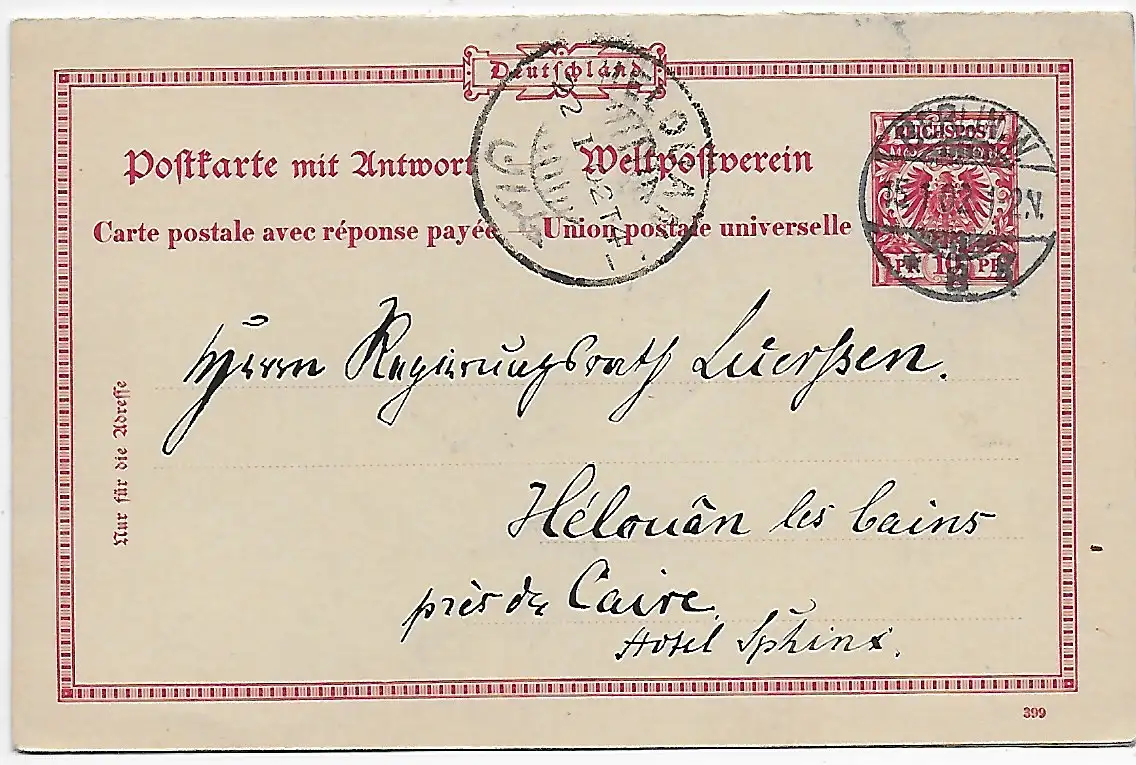 Deutschland
Postkarte mit Antwort — Weltpostverein
Carte postale avec réponse payée — Union postale universelle
REICHSPOST
PF 10 PF
Nur für die Adresse
Herrn Regierungsrath Lüerssen.
Hélouân les bains
près du Caire
Hotel Sphinx.
399